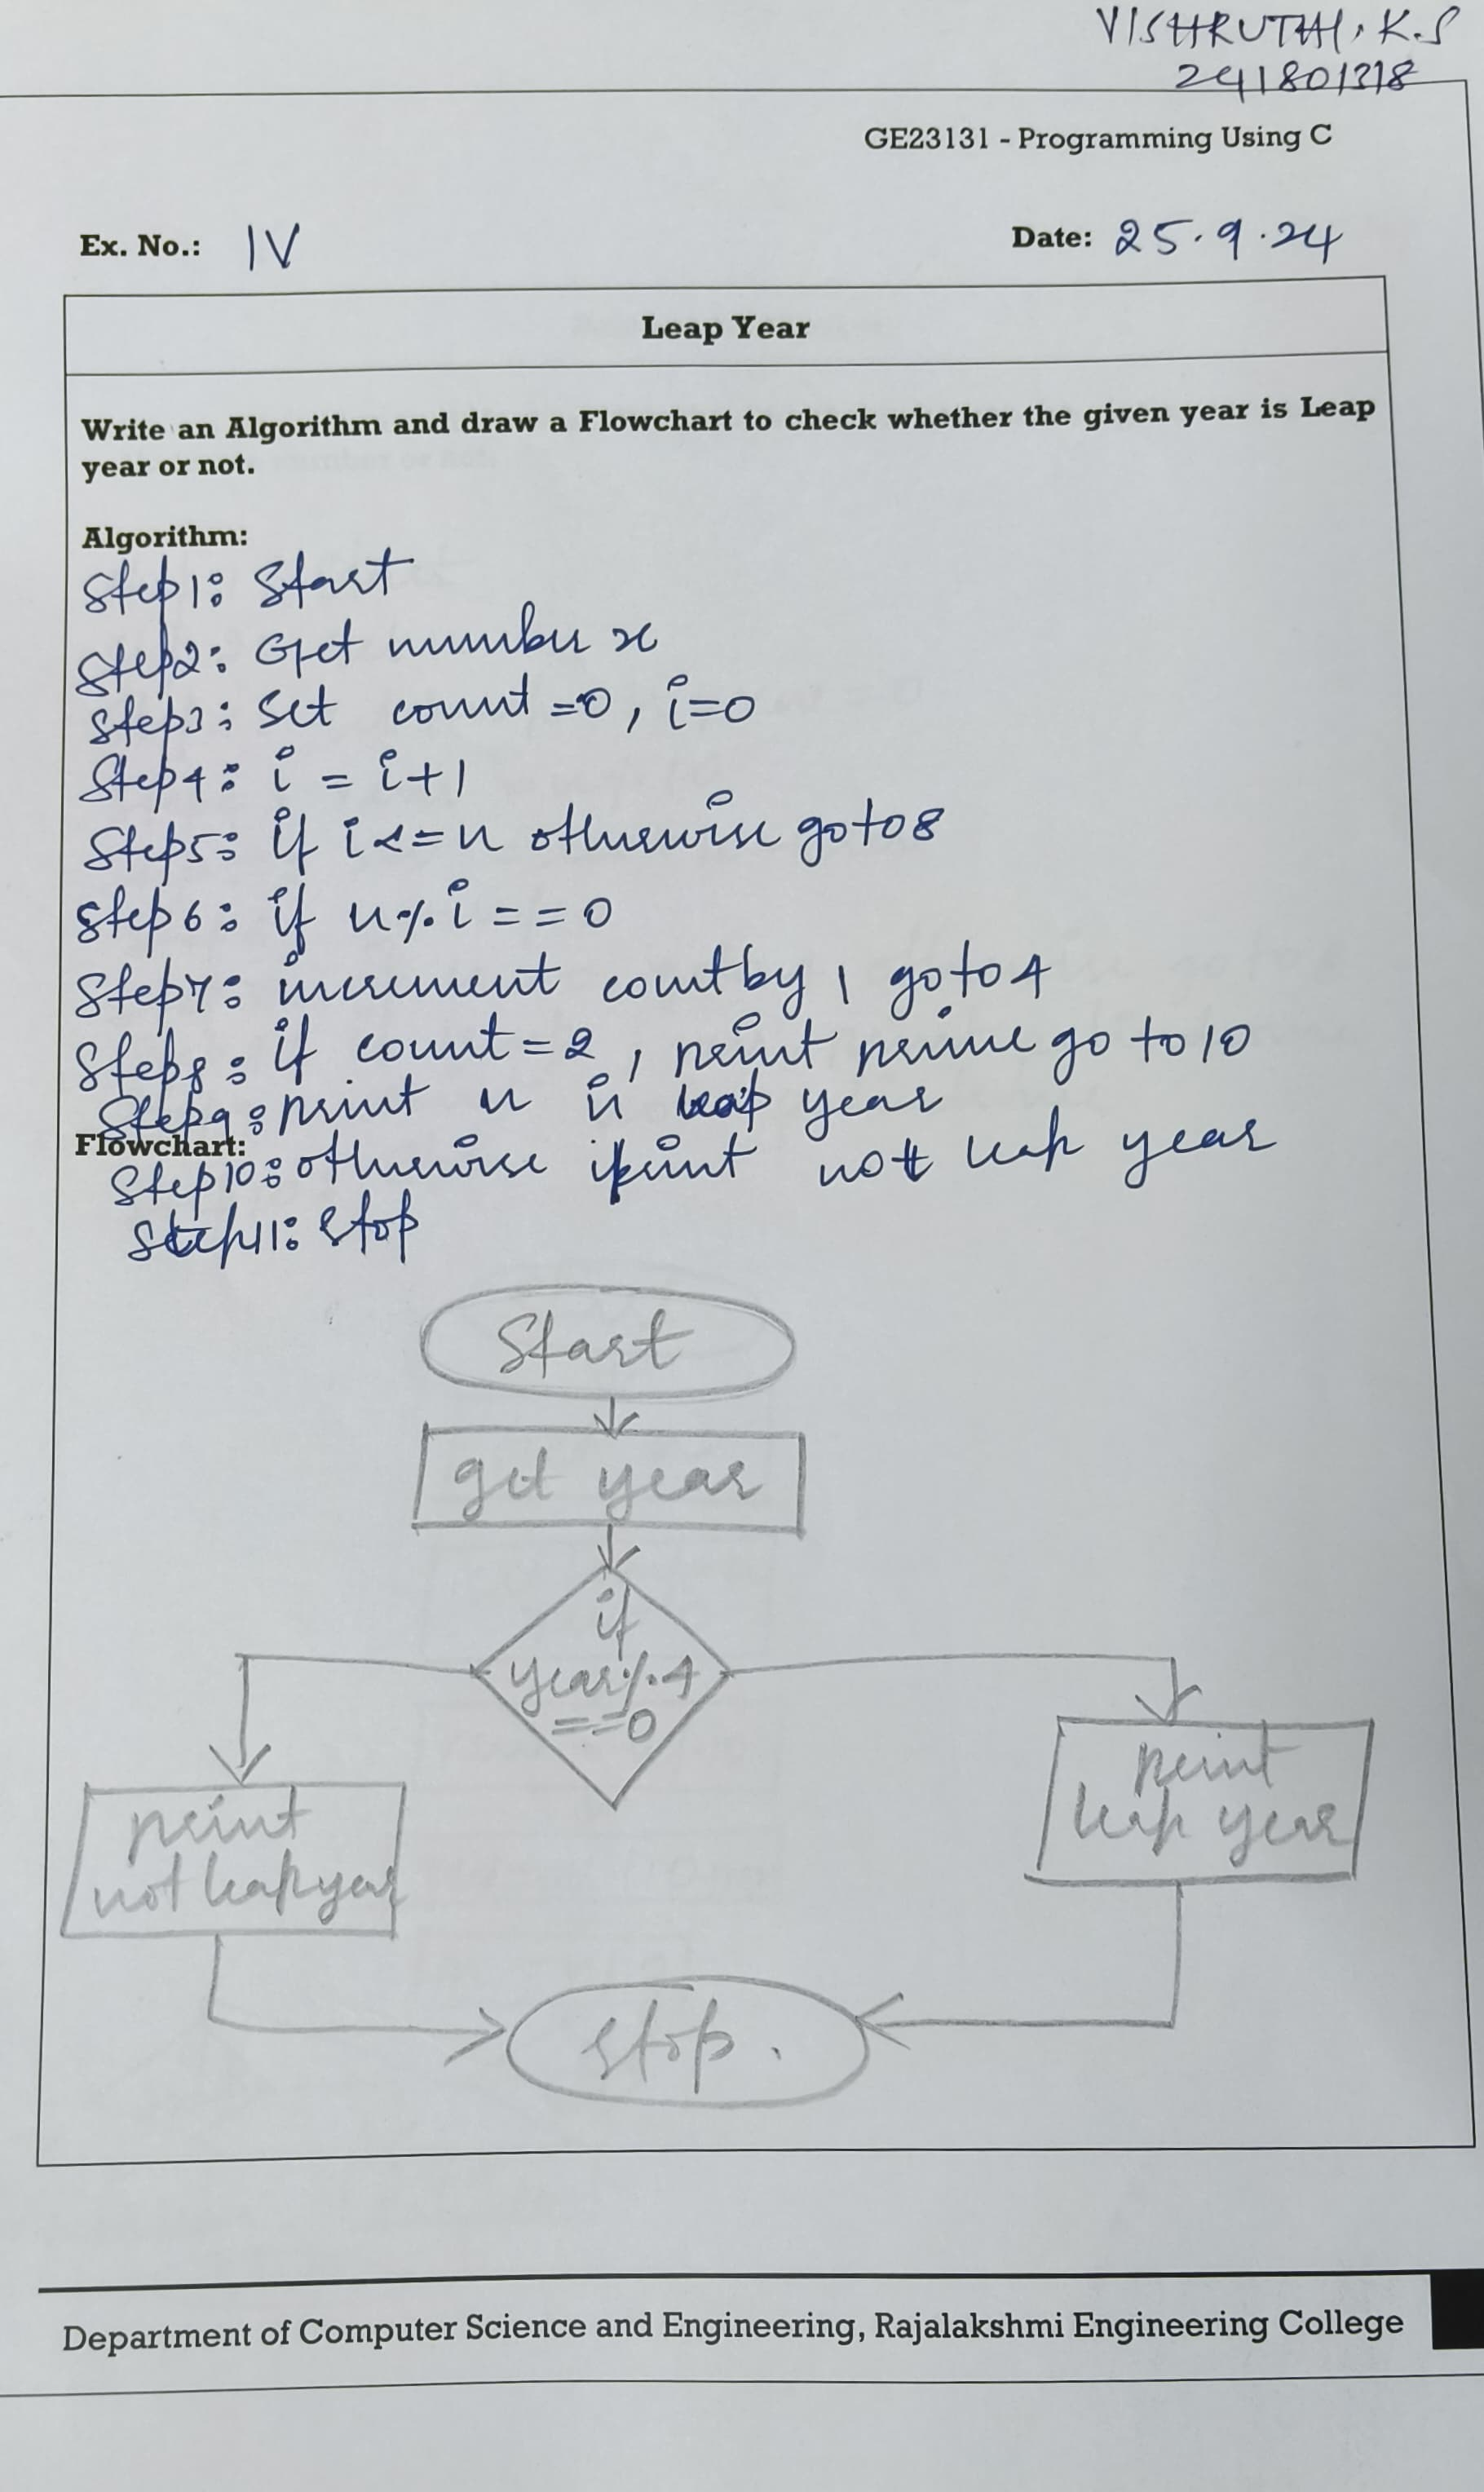 VISHRUTHI. K.S
241801318
GE23131 - Programming Using C
Ex. No.: IV
Date: 25.9.24
Leap Year
Write an Algorithm and draw a Flowchart to check whether the given year is Leap
year or not.
Algorithm:
Step1: Start
Step2: Get number x
Step3: Set count =0, i=0
Step4: i = i+1
Step5: if i<=n otherwise goto 8
Step6: if n%i==0
Step7: increment count by 1 goto 4
Step8: if count=2, print prime go to 10
Step9: print n is leap year
Flowchart:
Step10: otherwise print not leap year
Step11: stop
Start
get year
if
year%4
==0
print
leap year
print
not leap year
stop.
Department of Computer Science and Engineering, Rajalakshmi Engineering College